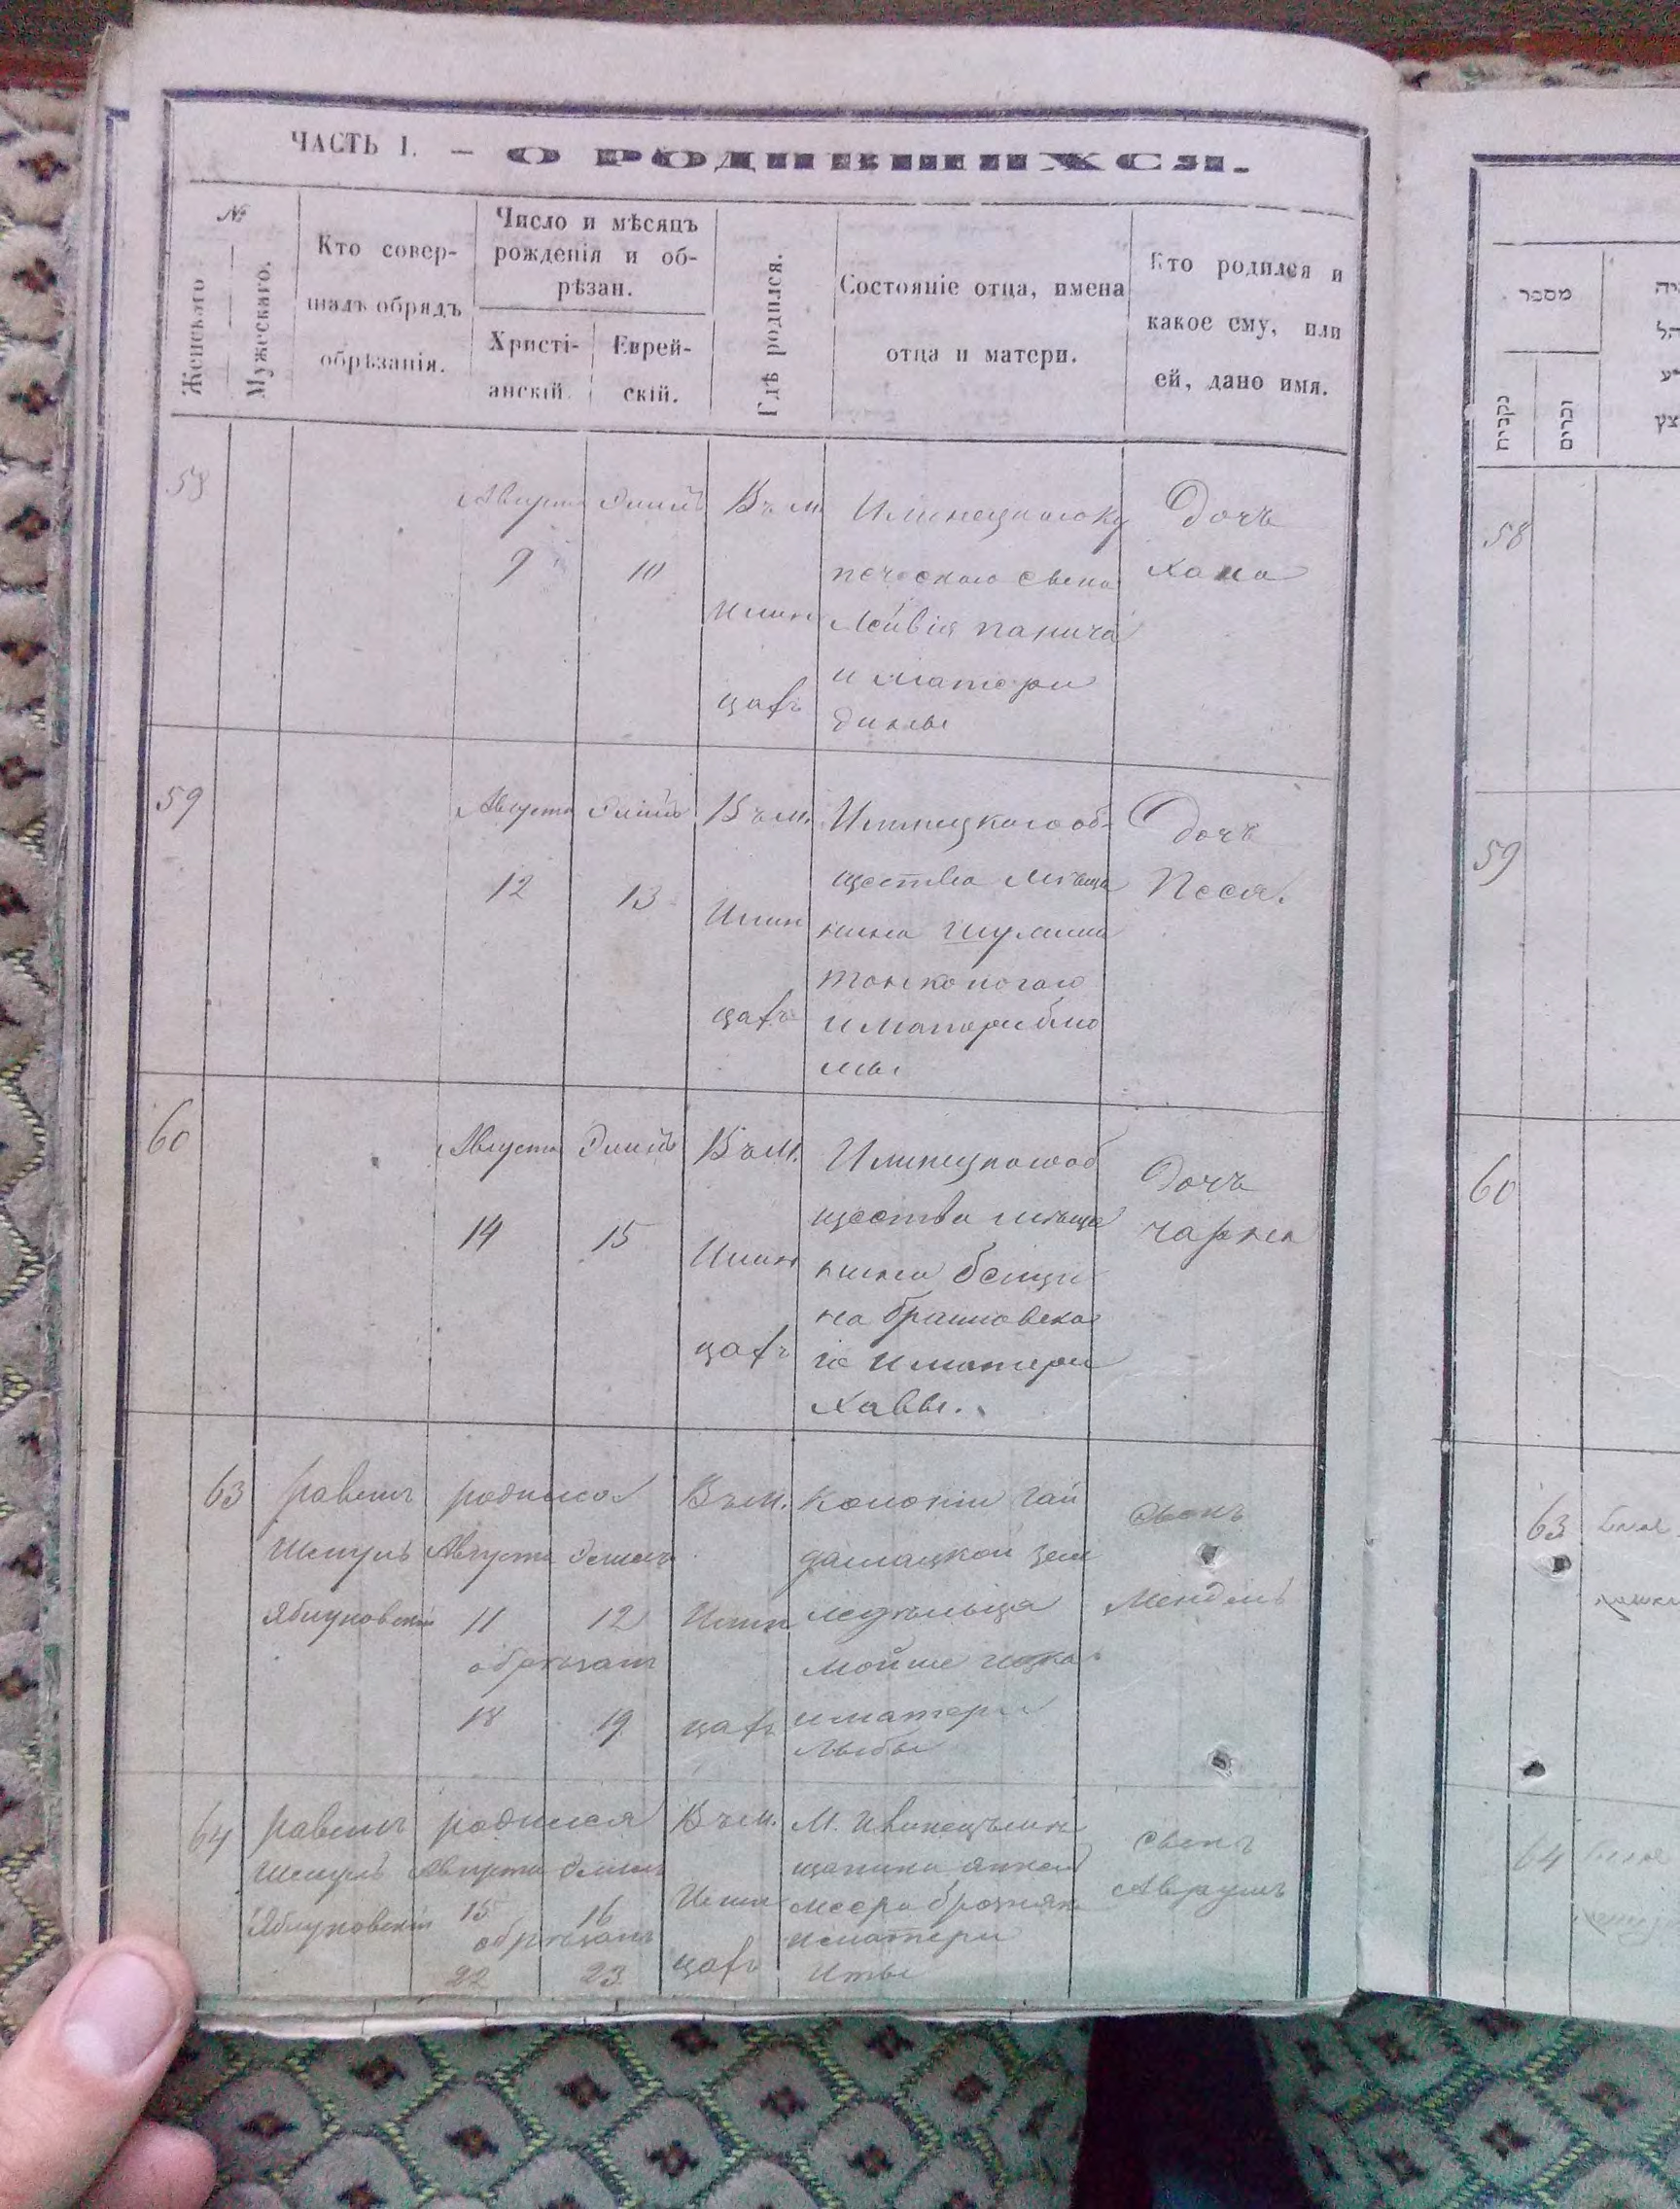 ЧАСТЬ I. — О РОДИВШИХСЯ.
№
Женскаго
Мужескаго.
Кто совер-
шалъ обрядъ
обрѣзанія.
Число и мѣсяцъ
рожденія и об-
рѣзан.
Христі-
анскій
Еврей-
скій.
Гдѣ родился.
Состояніе отца, имена
отца и матери.
Кто родился и
какое ему, или
ей, дано имя.
58
Августа
9
10
Въ м.
Илин
цахъ
Илинецкого ку
печеского сына
Лейвія Панича
и матери
Динлы
Дочь
Хана
59
Августа
12
13
Въ м.
Илин
цахъ
Илинецкого об-
щества мѣща
нина Шулима
Тонконогаго
и матери Блю
мы
Дочь
Песя.
60
Августа
14
15
Въ м.
Илин
цахъ
Илинецкого об
щества мѣща
нина Бенци
на Браиловска
го и матери
Хаввы.
Дочь
Чарна
63
равинъ
Шмуль
Яблуновскій
родился
Августа
11
12
обрѣзанъ
18
19
Въ м.
Илин
цахъ
Колоніи Гай
дамацкой зем
ледѣльца
Мойше
и матери
Сынъ
Мендель
64
равинъ
Шмуль
Яблуновскій
родился
Августа
15
16
обрѣзанъ
22
23
Въ м.
Илин
цахъ
М.
щанина
и матери
Иты
Сынъ
Аврумъ
מספר
נקבות
זכרים
58
59
60
63
64